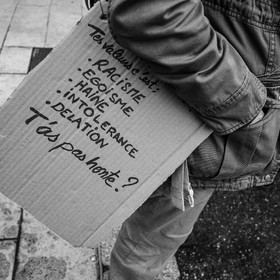 Tes valeurs c'est :
• RACISME
• EGOÏSME
• HAINE
• INTOLERANCE
• DELATION
T'as pas honte ?